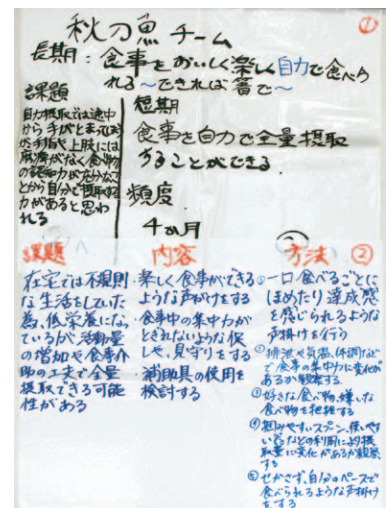 秋刀魚チーム
①
長期:食事をおいしく楽しく自力で食べら
れる〜できれば箸で〜
課題
自力摂取では途中
から手がとまってしまう
が手指や上肢には
麻痺がなく食べ物
の認知力が充分なこ
とから自分で摂取する
力があると思わ
れる
短期
食事を自力で全量摂取
することができる
頻度
4か月
課題
在宅では不規則
な生活をしていた
為、低栄養になっ
ているが活動量
の増加や食事介
助の工夫で全量
摂取できる可能
性がある
内容
・楽しく食事ができる
ような声がけをする
・食事中の集中力が
とぎれないような促
しや、見守りをする
・補助具の使用を
検討する
方法 ②
①一口食べるごとに
ほめたり達成感
を感じられるような
声掛けを行う
②排泄や気温、体調など
で食事の集中力に変化が
あるか観察する
③好きな食べ物、嫌いな
食べ物を把握する
④掴みやすいスプン、使いやす
い皿などの利用により摂
取量に変化があるか観察
する
⑤せかさず、自分のペースで
食べられるような声掛け
をする